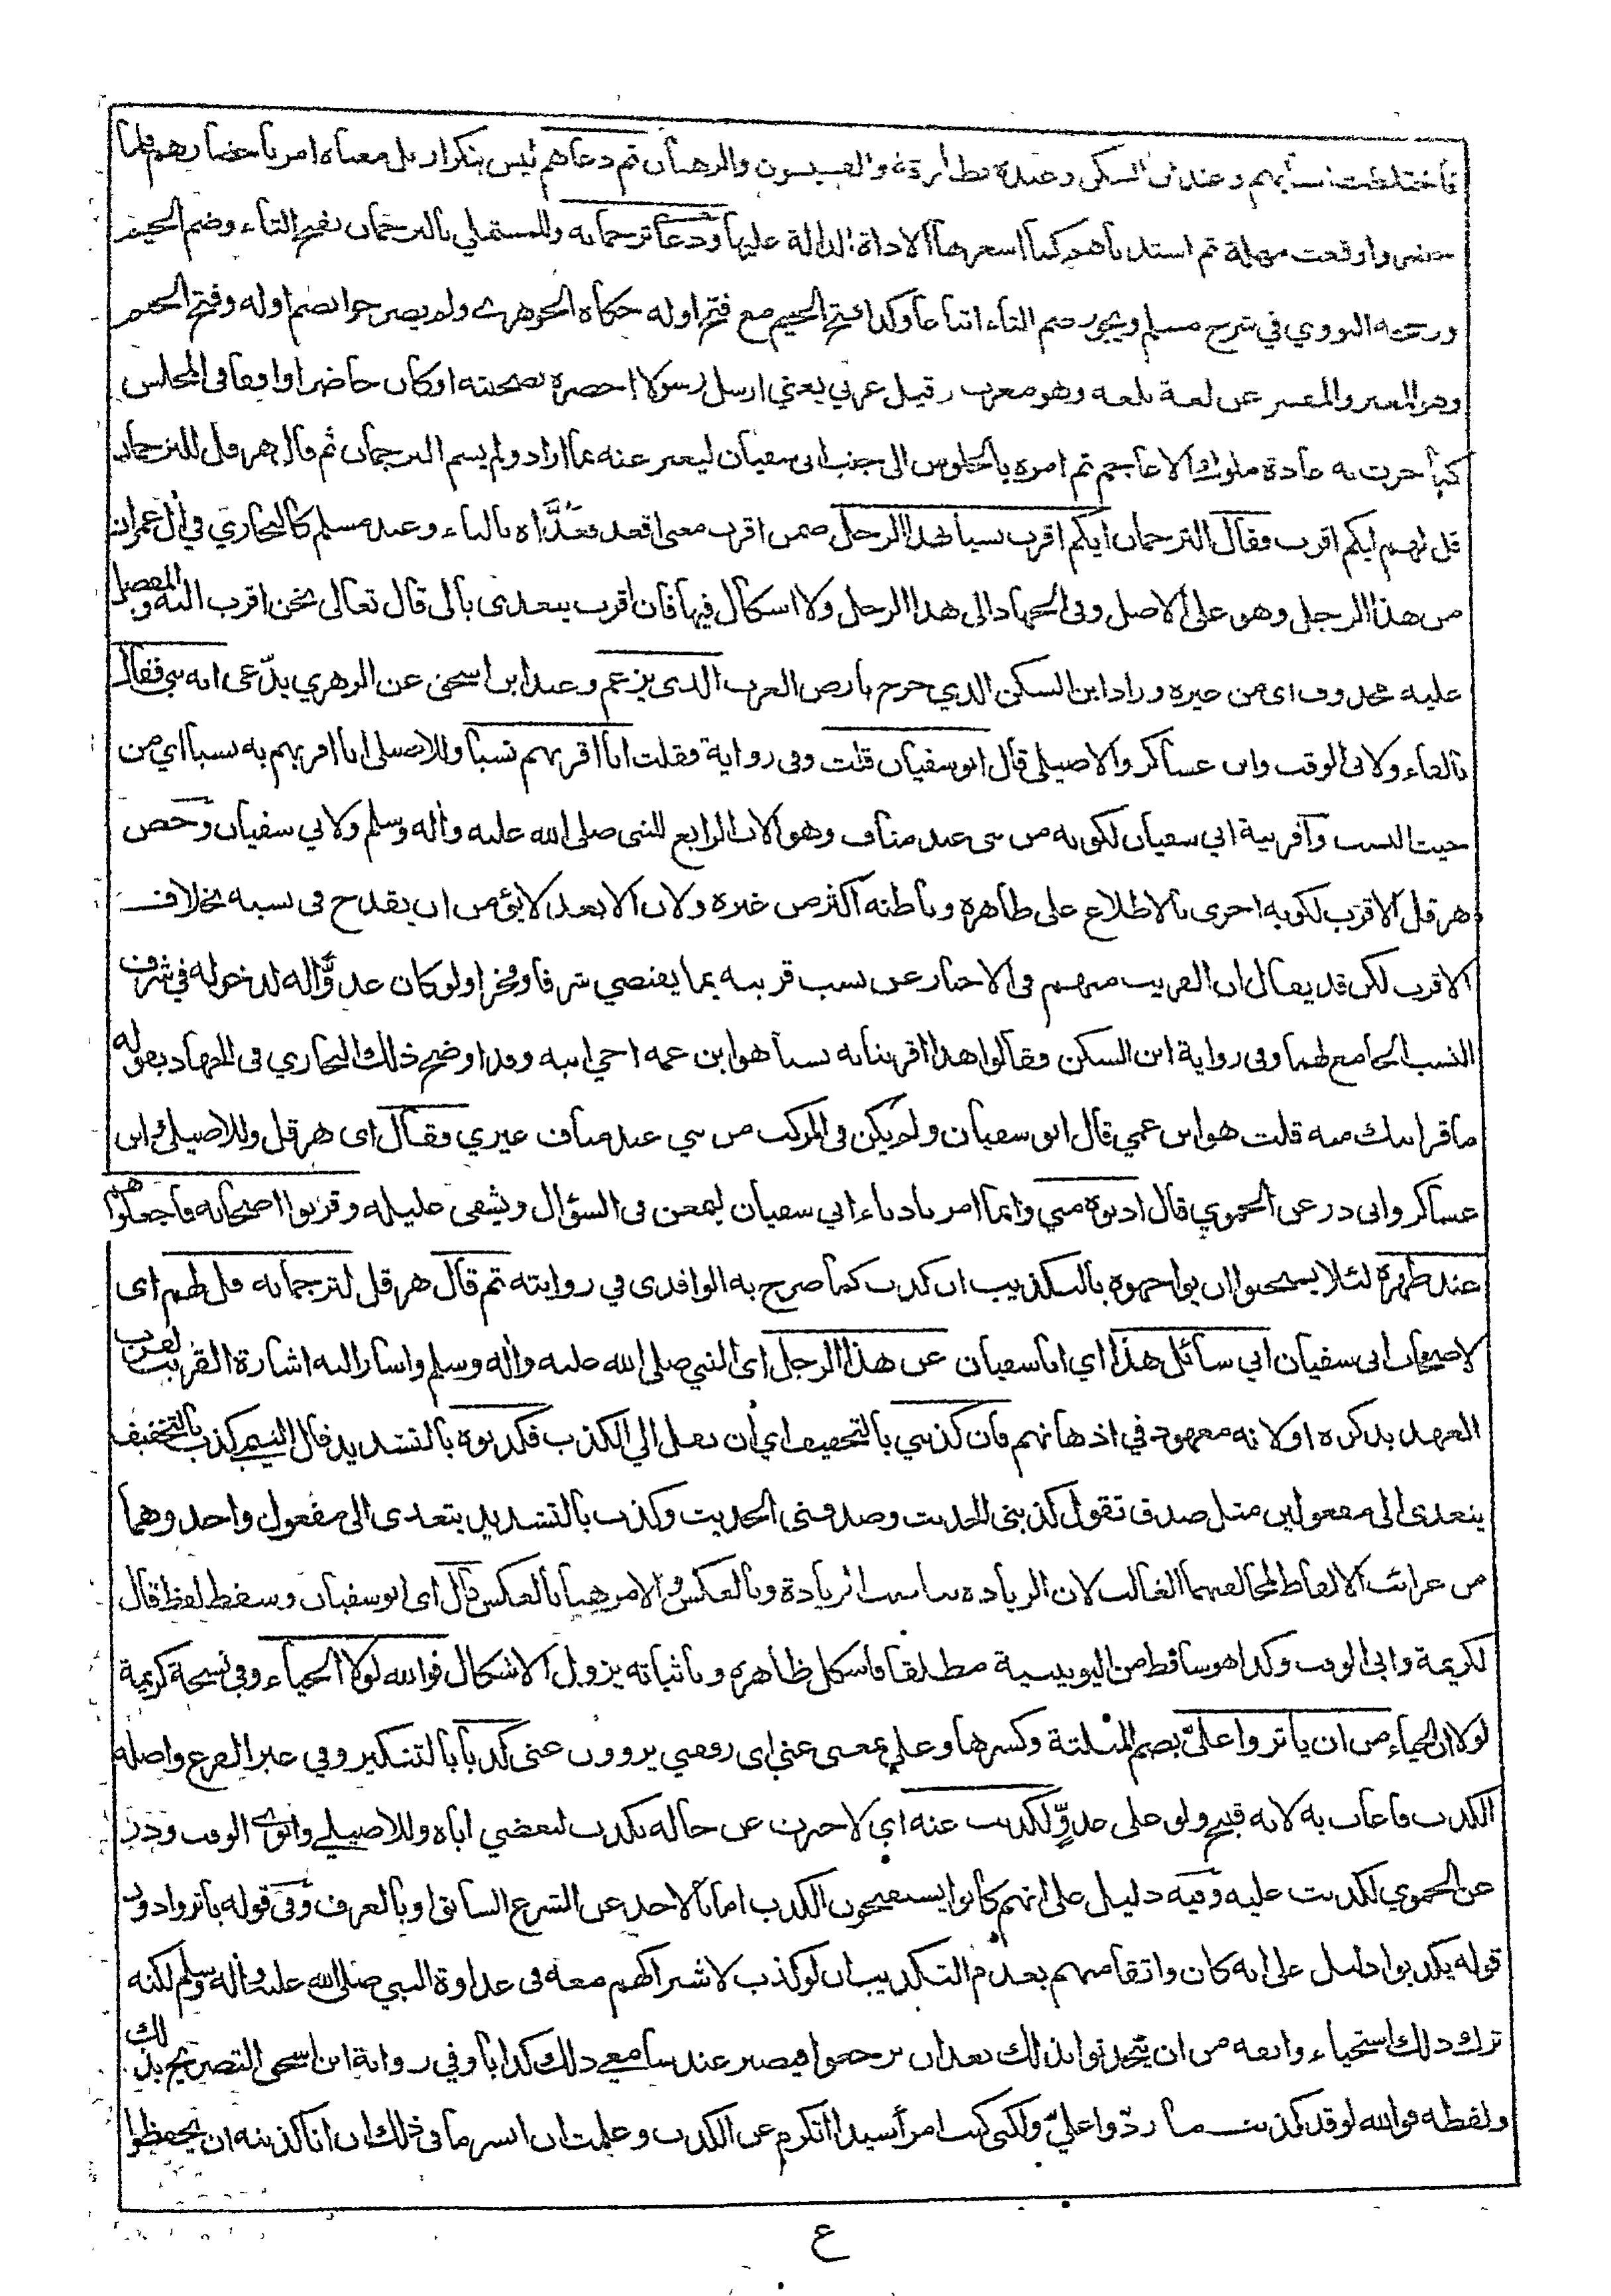 فاختلطت انسابهم وعند ابن السكن وعنده بطارقته والقسيسون والرهبان ثم دعاهم ليس بتكرار بل معناه امر باحضارهم فلما
حضروا وقعت مهلة ثم استدناهم كما اشعر بها الاداة الدالة عليها ودعا ترجمانه وللمستملي بالترجمان بفتح التاء وضم الجيم
ورجحه النووي في شرح مسلم ويجوز ضم التاء اتباعا وكذا فتح الجيم مع فتح اوله حكاه الجوهري ولم يصرحوا بضم اوله وفتح الجيم
وهو المعبر والمفسر عن لغة بلغة وهو معرب وقيل عربي يعني ارسل رسولا احضره بصحبته او كان حاضرا واقفا في المجلس
كما جرت به عادة ملوك الاعاجم ثم امره بالجلوس الى جنب ابي سفيان ليعبر عنه بما اراد ولم يسم الترجمان ثم قال هرقل للترجمان
قل لهم ايكم اقرب فقال الترجمان ايكم اقرب نسبا بهذا الرجل ضمن اقرب معنى اقعد فعدّاه بالباء وعند مسلم كالبخاري في آل عمران
من هذا الرجل وهو على الاصل وفي الجهاد الى هذا الرجل ولا اشكال فيها فان اقرب يتعدى بالى قال تعالى نحن اقرب اليه والمفضل
عليه محذوف اى من غيره وزاد ابن السكن الذي خرج بارض العرب الذي يزعم وعند ابن اسحق عن الزهري يدّعى انه نبي فقال
بالفاء ولابى الوقت وابن عساكر والاصيلي قال ابو سفيان قلت وفى رواية فقلت انا اقربهم نسبا وللاصيلي انا اقربهم به نسبا اي من
حيث النسب واقربية ابي سفيان لكونه من بنى عبد مناف وهو الاب الرابع للنبي صلى الله عليه وآله وسلم ولابي سفيان وخص
هرقل الاقرب لكونه احرى بالاطلاع على ظاهره وباطنه اكثر من غيره ولان الابعد لا يؤمن ان يقدح في نسبه بخلاف
الاقرب لكن قد يقال ان القريب متهم في الاخبار عن نسب قريبه بما يقتضي شرفا وفخرا ولو كان عدوًّا له لدخوله في شرف
النسب الجامع لهما وفى رواية ابن السكن فقالوا هذا اقربنا به نسبا هو ابن عمه اخي ابيه وقد اوضح ذلك البخاري في الجهاد بقوله
ما قرابتك منه قلت هو ابن عمي قال ابو سفيان ولم يكن في الركب من بني عبد مناف غيري فقال اى هرقل وللاصيلي وابن
عساكر وابى ذر عن الحموي قال ادنوه مني وانما امر بادناء ابي سفيان ليمعن في السؤال ويشفى غليله وقربوا اصحابه فاجعلوهم
عند ظهره لئلا يستحيوا ان يواجهوه بالتكذيب ان كذب كما صرح به الواقدى في روايته ثم قال هرقل لترجمانه قل لهم اى
لاصحاب ابى سفيان اني سائل هذا اي ابا سفيان عن هذا الرجل اى النبي صلى الله عليه وآله وسلم واشار اليه اشارة القريب لقرب
العهد بذكره او لانه معهود في اذهانهم فان كذبني بالتخفيف اي ان نقل الي الكذب فكذبوه بالتشديد قال التيمي كذب بالتخفيف
يتعدى الى مفعولين مثل صدق تقول كذبني الحديث وصدقنى الحديث وكذب بالتشديد يتعدى الى مفعول واحد وهما
من غرائب الالفاظ لمخالفتهما الغالب لان الزيادة تناسب الزيادة وبالعكس والامر هنا بالعكس قال اى ابو سفيان وسقط لفظ قال
لكريمة وابى الوقت وكذا هو ساقط من اليونينية مطلقا فاشكل ظاهره وباثباته يزول الاشكال فوالله لولا الحياء وفي نسخة كريمة
لولا ان الحياء من ان ياثروا عليّ بضم المثلثة وكسرها وعلي بمعنى عني اى رفقتي يروون عنى كذبا بالتنكير وفي غير الفرع واصله
الكذب فاعاب به لانه قبيح ولو على عدوٍّ لكذبت عنه اي لاخبرت عن حاله بكذب لبغضي اياه وللاصيلي وابوى الوقت وذر
عن الحموي لكذبت عليه وفيه دليل على انهم كانوا يستقبحون الكذب اما بالاخذ عن الشرع السابق او بالعرف وفي قوله ياثروا دون
قوله يكذبوا دليل على انه كان واثقا منهم بعدم التكذيب ان لو كذب لاشتراكهم معه في عداوة النبي صلى الله عليه وآله وسلم لكنه
ترك ذلك استحياء وانفة من ان يتحدثوا بذلك بعد ان يرجعوا فيصير عند سامعي ذلك كذابا وفي رواية ابن اسحق التصريح بذلك
ولفظه فوالله لو قد كذبت ما ردّوا عليّ ولكنى كنت امرأ سيدا اتكرم عن الكذب وعلمت ان ايسر ما في ذلك ان انا كذبته ان يحفظوا
ع